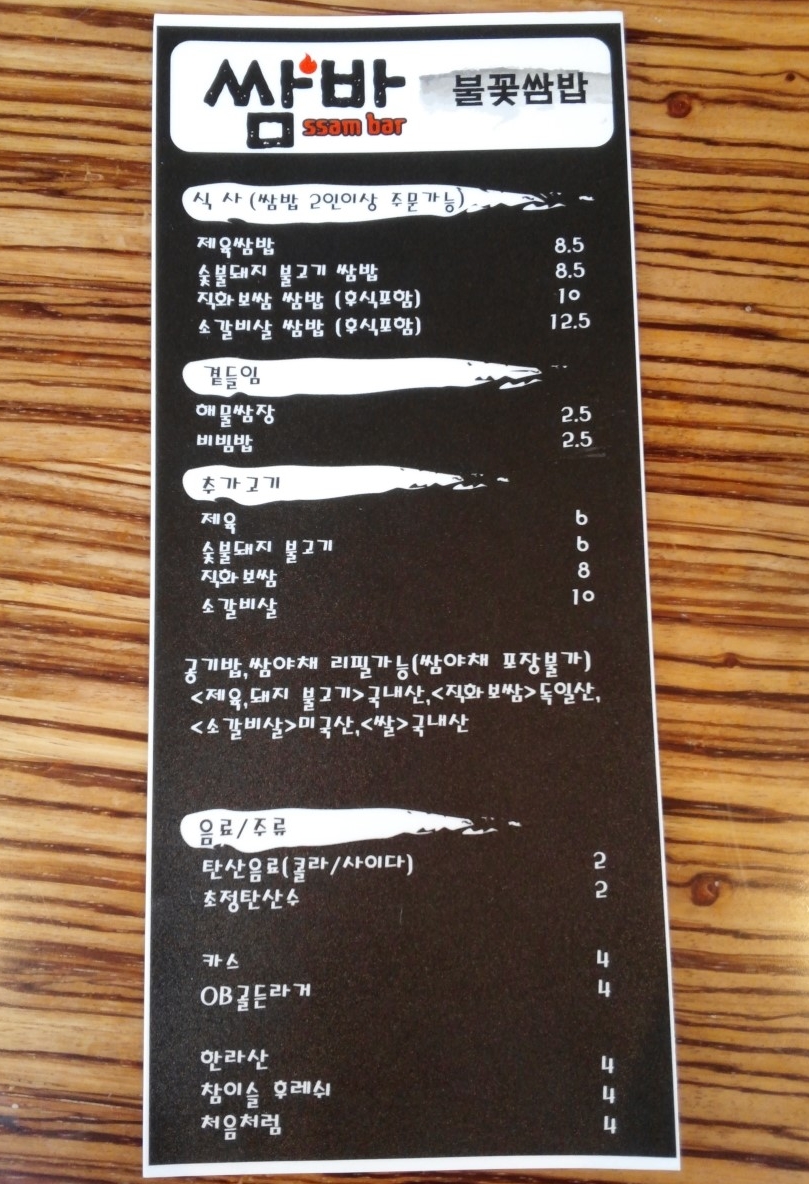 쌈바
ssam bar
불꽃쌈밥
식 사 (쌈밥 2인이상 주문가능)
제육쌈밥 8.5
숯불돼지 불고기 쌈밥 8.5
직화보쌈 쌈밥 (후식포함) 10
소갈비살 쌈밥 (후식포함) 12.5
곁들임
해물쌈장 2.5
비빔밥 2.5
추가고기
제육 6
숯불돼지 불고기 6
직화보쌈 8
소갈비살 10
공기밥,쌈야채 리필가능(쌈야채 포장불가)
<제육,돼지 불고기>국내산,<직화보쌈>독일산,
<소갈비살>미국산,<쌀>국내산
음료/주류
탄산음료(콜라/사이다) 2
초정탄산수 2
카스 4
OB골든라거 4
한라산 4
참이슬 후레쉬 4
처음처럼 4